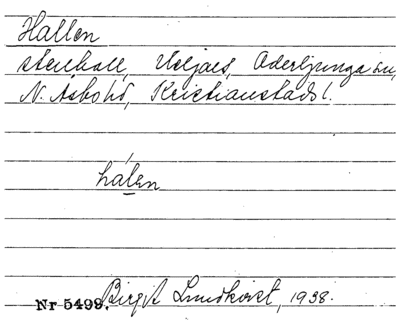 Hallen
stenhall, Ueljaes, Oderljunga sn,
N. Åsbo hd, Kristianstads l.
hálen
Nr 5499. Birgit Lundkvist, 1938.